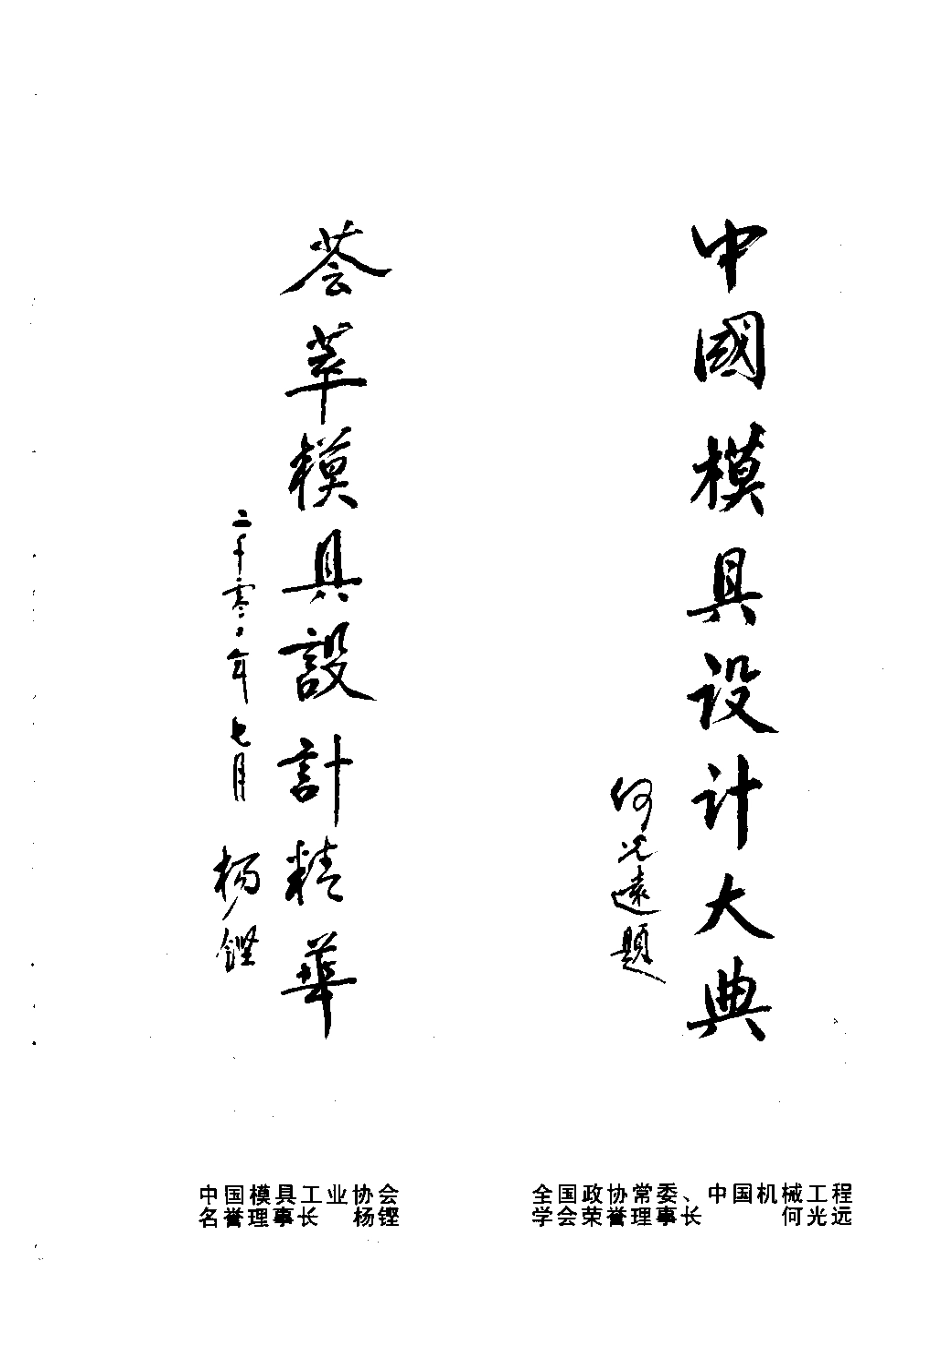 中國模具设计大典
何光遠題
荟萃模具設計精華
二千零零年七月 杨铿
全国政协常委、中国机械工程
学会荣誉理事长 何光远
中国模具工业协会
名誉理事长 杨铿